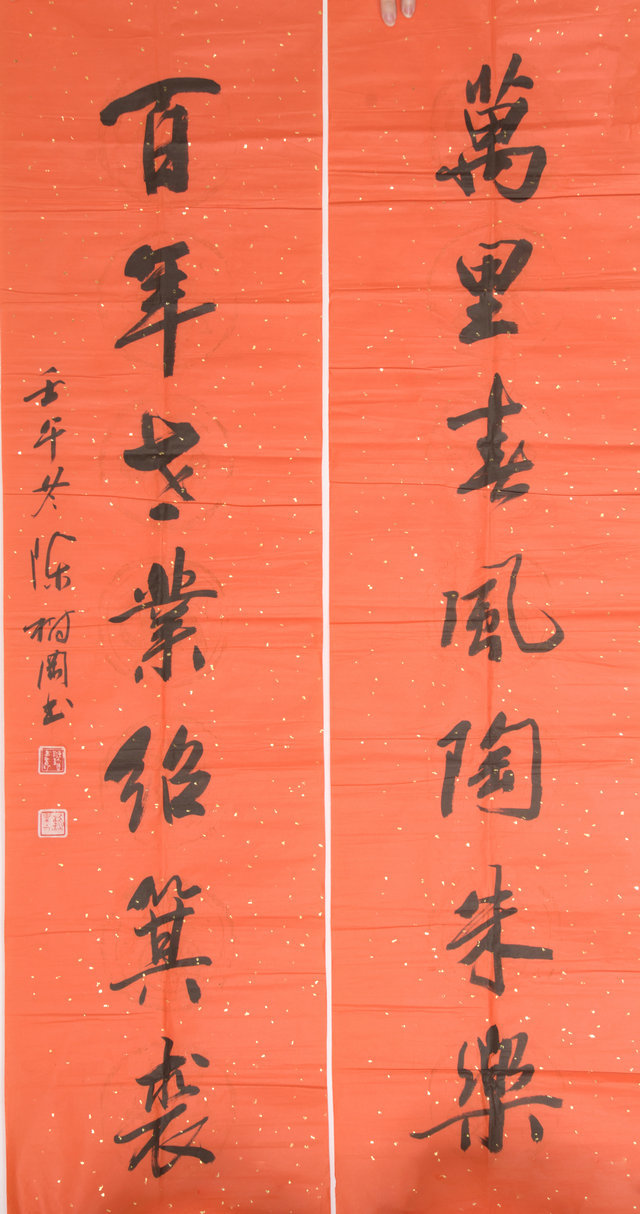 萬里春風陶朱樂
百年世業紹箕裘
壬午冬陳樹書